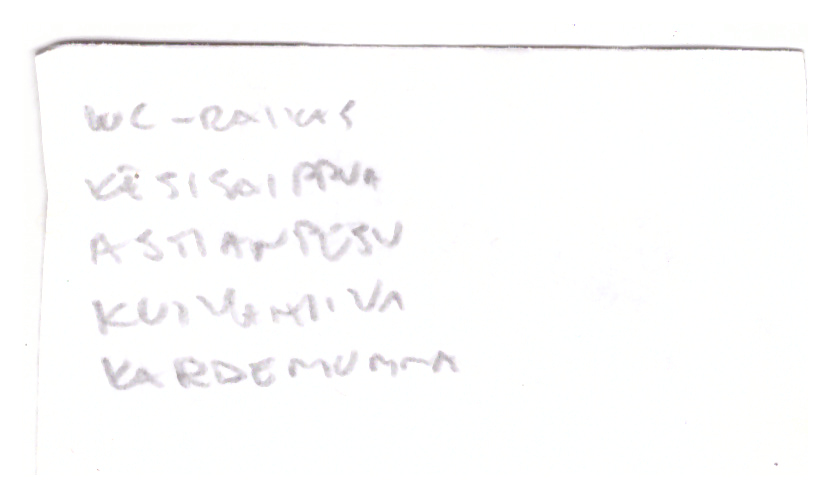 WC-RAIKAS
KÄSISAIPPUA
ASTIANPESU
KUIVAHIIVA
KARDEMUMMA